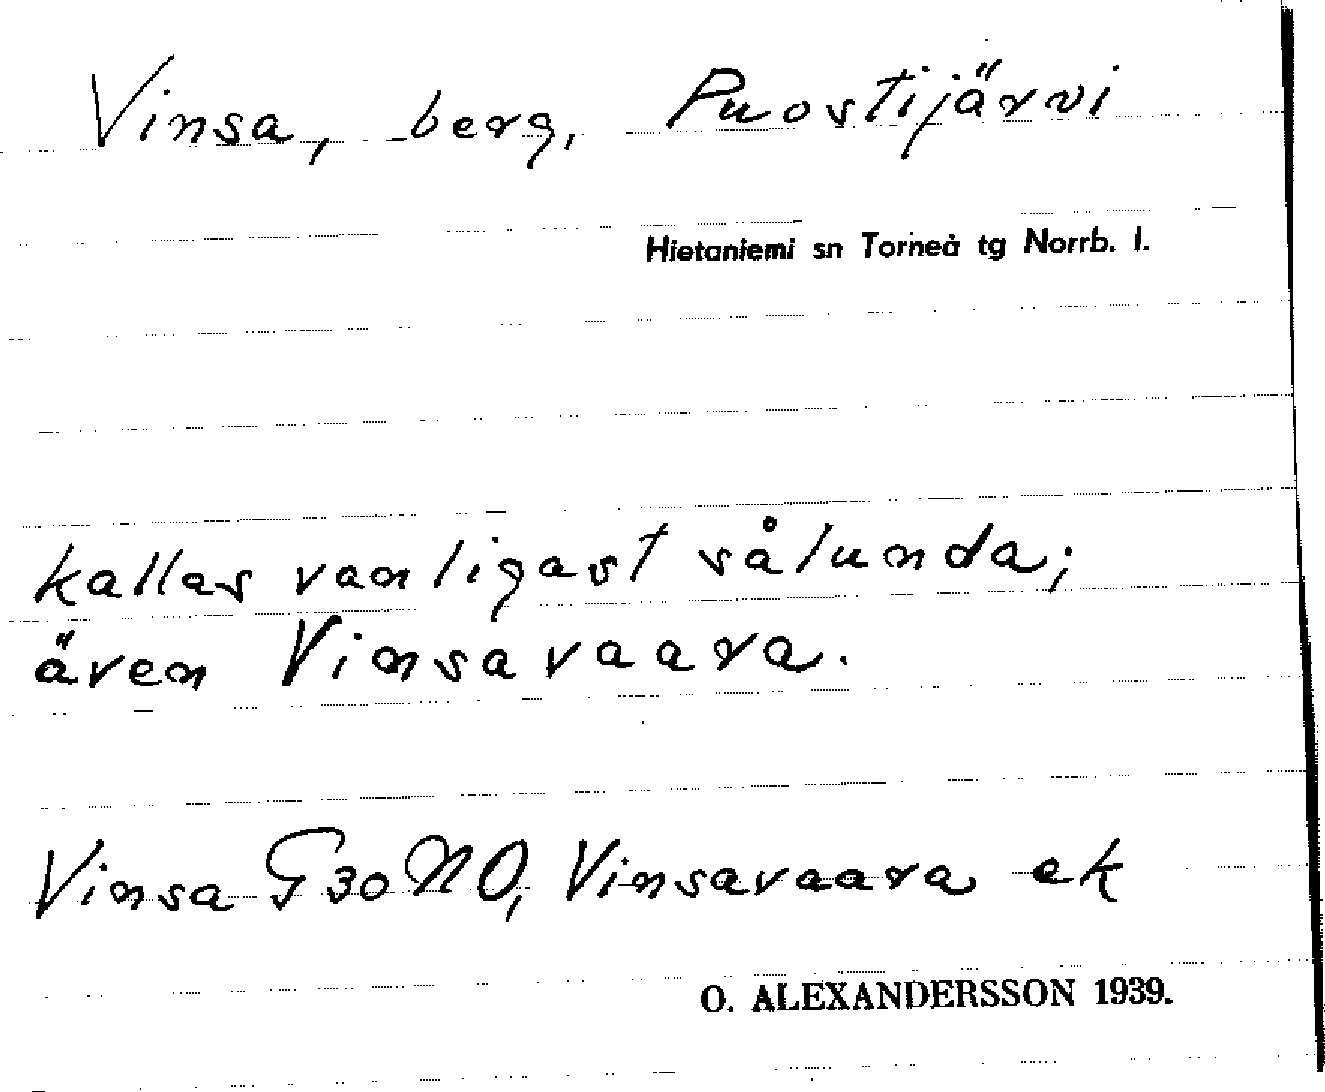 Vinsa, berg, Puostijärvi
Hietaniemi sn Torneå tg Norrb. l.
kallas vanligast sålunda;
även Vinsavaara.
Vinsa G30NO, Vinsavaara ek
O. ALEXANDERSSON 1939.